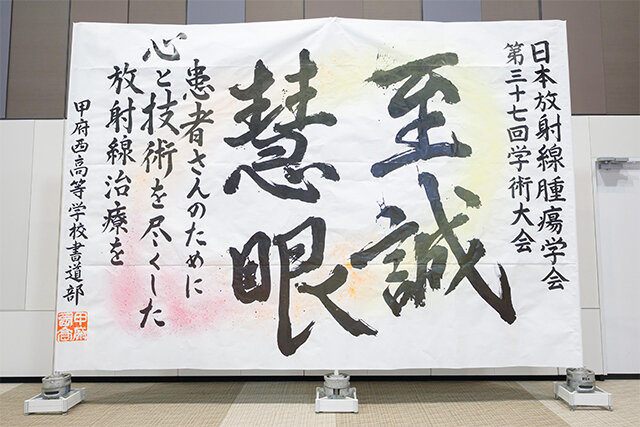 日本放射線腫瘍学会
第三十七回学術大会
至誠
慧眼
患者さんのために
心と技術を尽くした
放射線治療を
甲府西高等学校書道部